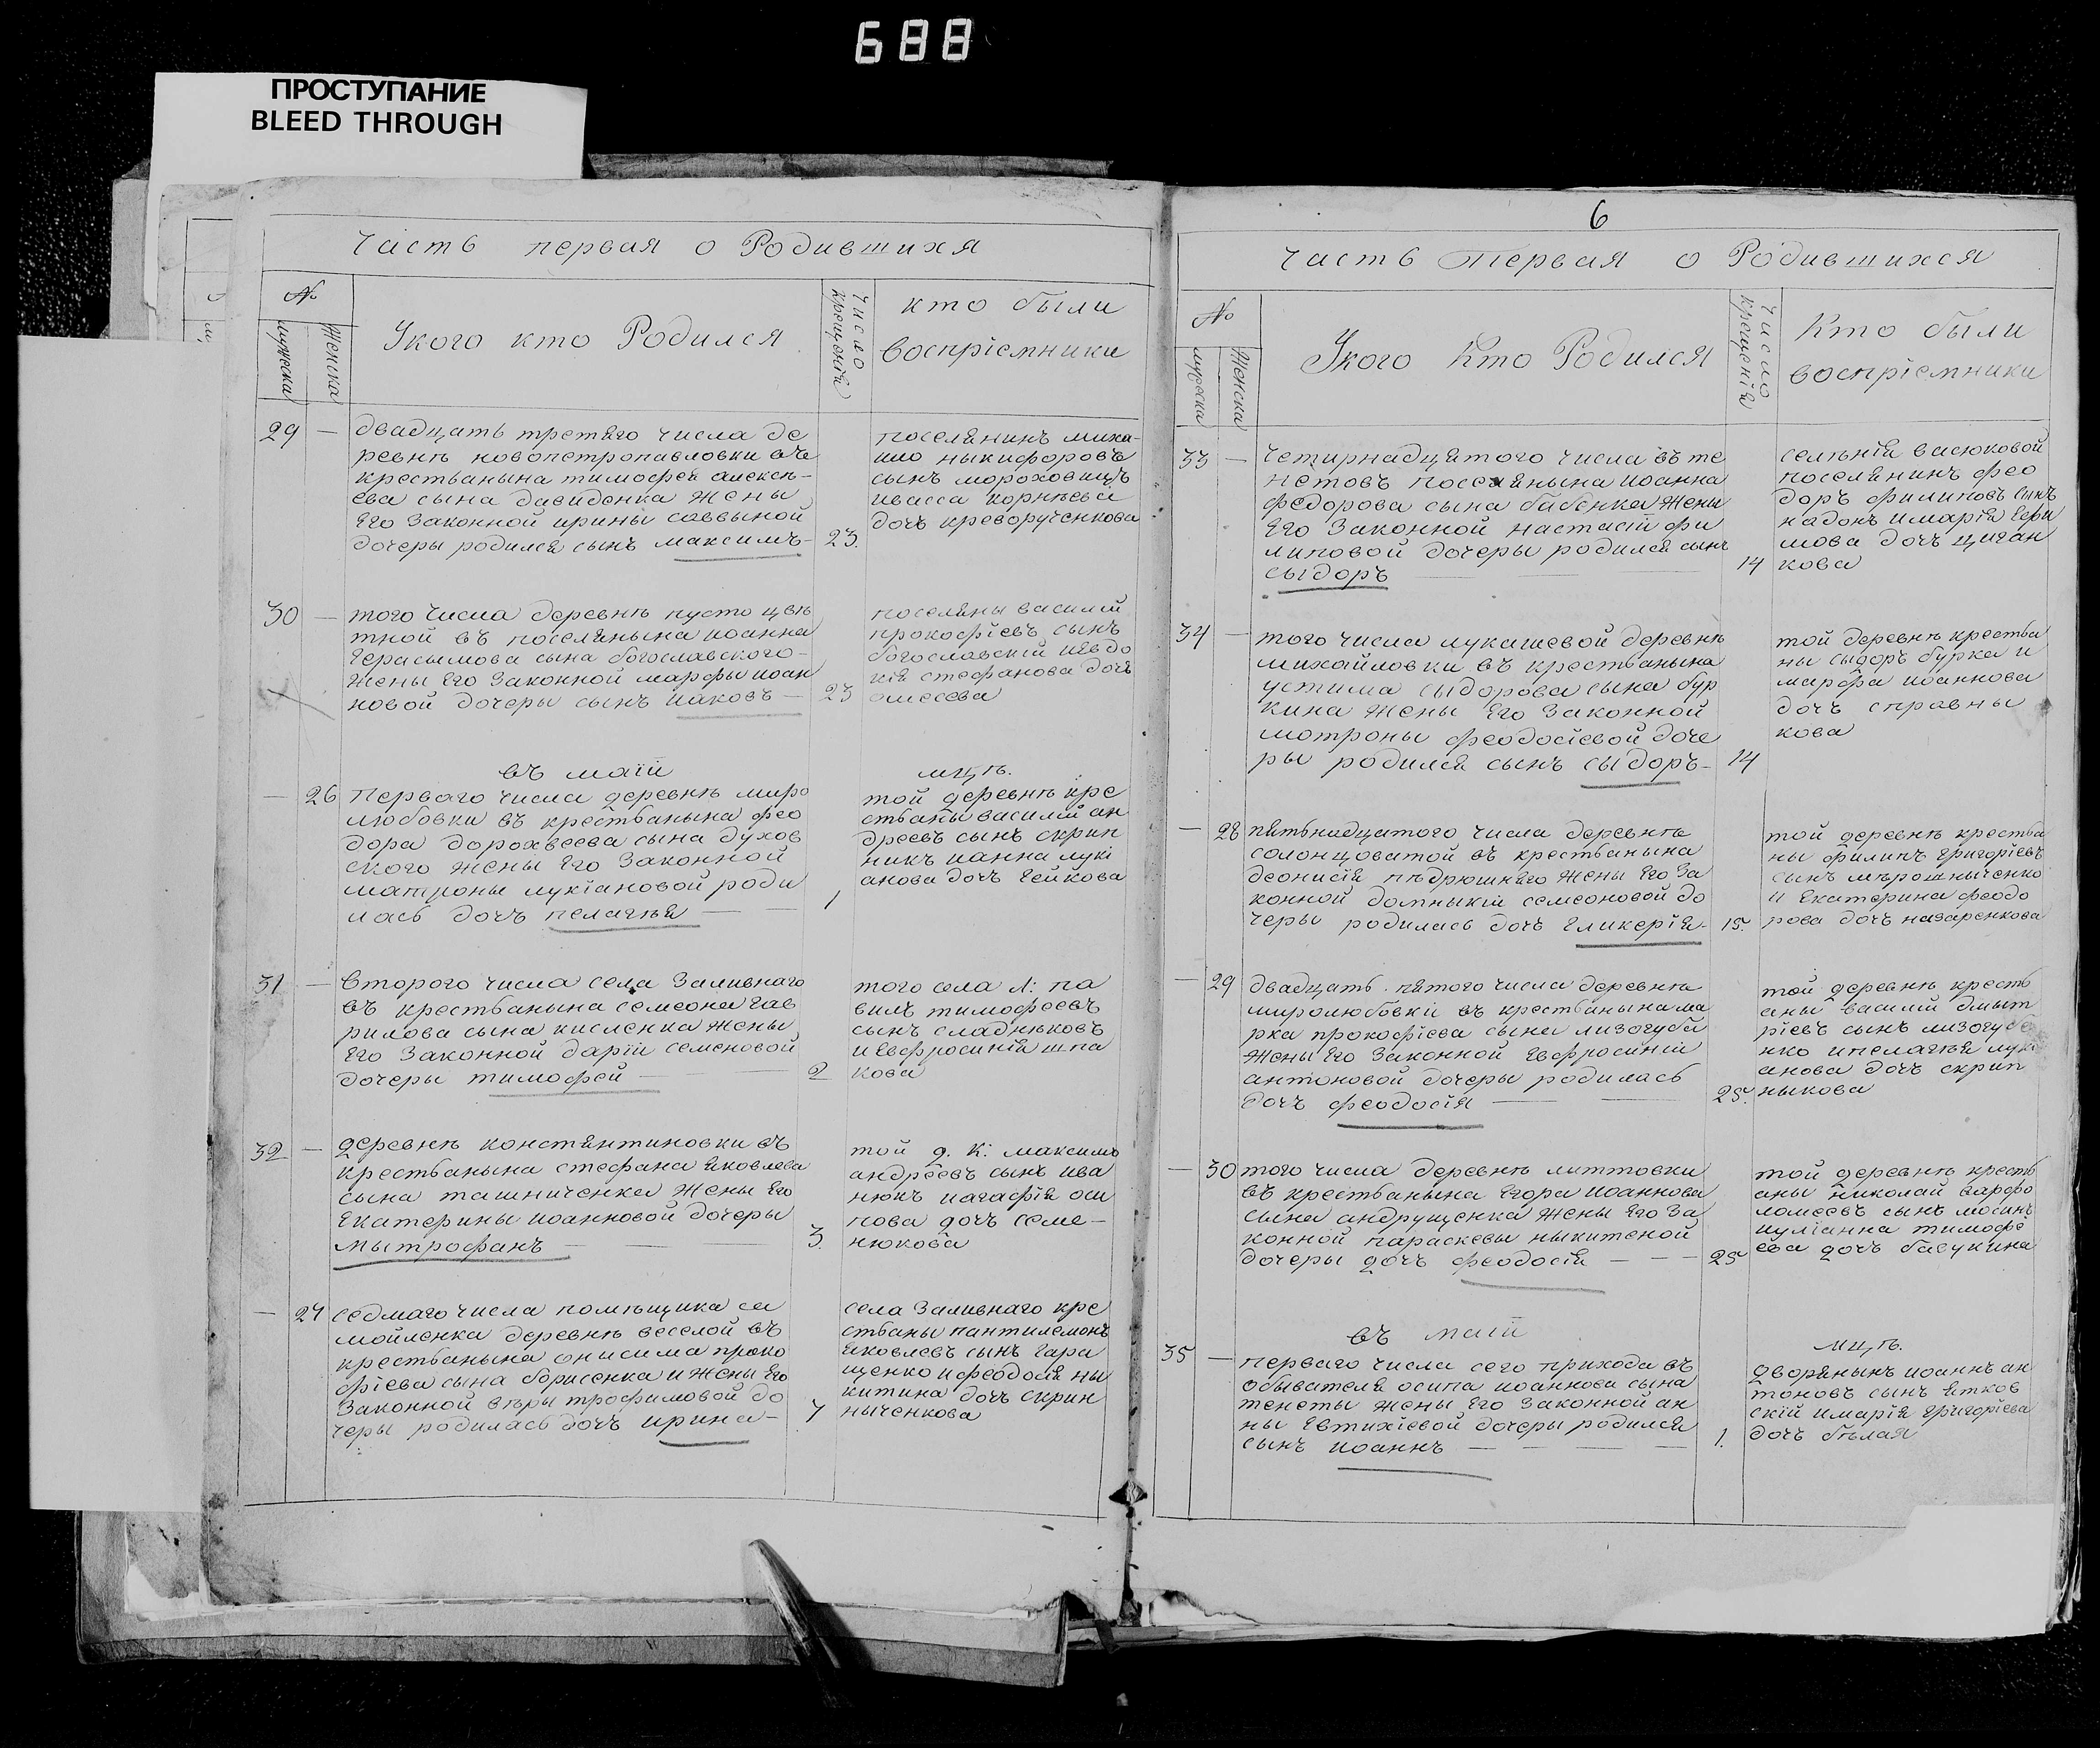 688
ПРОСТУПАНИЕ
BLEED THROUGH
Часть первая о Родившихя
№
мужеска
Женска
Укого кто Родился
Число крещенія
кто были
воспріемники
29 —
двадцать третяго числа де
ревнѣ новопетропавловки въ
крестьянына тимофея алексѣ-
ева сына давиденка жены
Его Законной ирины саввыной
дочеры родился сынъ максимъ-
23.
поселянинъ миха-
ило ныкифоровъ
сынъ мороховицъ
ивасса корнѣева
дочъ креворученкова
30 —
того числа деревнѣ пусто цвѣ
тной въ поселянына иоанна
Герасымова сына богославского-
жены Его Законной марфы иоан
новой дочеры сынъ иаковъ —
23
поселяны василій
прокофіевъ сынъ
богославскій иевдо
кія стефанова дочъ
омесева
въ маіи
— 26
Перваго числа деревнѣ миро
любовки въ крестьянына фео
дора дорохвеева сына духов
ского жены Его Законной
матроны лукіановой роди
лась дочъ пелагѣя —
1
мцѣ.
той деревнѣ кре
стьяны василій ан
дреевъ сынъ скрип
никъ ианна лукі
анова дочъ Гейкова
31 —
Второго числа села Заливнаго
въ крестьянына семеона Гав
рилова сына кисленка жены
Его Законной даріи семеновой
дочеры тимофей —
2
того села Л: па
вилъ тимофеевъ
сынъ сладньковъ
и Евфросинія шпа
кова
32 —
деревнѣ константиновки въ
крестьянына стефана яковлева
сына ташниченка жены Его
Екатерины иоанновой дочеры
мытрофанъ —
3.
той д. К: максимъ
андреевъ сынъ ива
нюкъ иагафія оси
пова дочъ семе-
нюкова
— 27
седмаго числа помѣщика са
мойленка деревнѣ веселой въ
крестьянына онисима проко
фіева сына борисенка и жены Его
Законной вѣры трофимовой до
черы родилась дочъ ирина-
7
села Заливнаго кре
стьяны пантилемонъ
яковлевъ сынъ Гара
щенко ифеодоля ны
китина дочъ скрип
ныченкова
6
Часть Первая о Родившихся
№
мужеска
Женска
Укого Кто Родился
Число крещенія
Кто были
воспріемники
33 —
Четирнадцятого числа въ те
нетовъ поселянына иоанна
федорова сына бабенка жены
Его Законной настасіи фи
липовой дочеры родился сынъ
сыдоръ
14
селѣнія васюковой
поселянинъ фео
доръ филиповъ сынъ
надонъ имарія Ефи
мова дочъ циган
кова
34 —
того числа лукашевой деревнѣ
михайловки въ крестьянына
устима сыдорова сына бур
кина жены Его Законной
мотроны феодосіевой доче
ры родился сынъ сыдоръ-
14
той деревнѣ крестья
ны сыдоръ бурка и
марфа иоаннова
дочъ справны
кова
— 28
пятьнадцатого числа деревнѣ
солонцоватой въ крестьянына
деонисія пѣдрюшняго жены Его За
конной домныкіи семеоновой до
черы родилась дочъ Гликерія-
15.
той деревнѣ крестья
ны филипъ Григоріевъ
сынъ мѣрошныченко
и Екатерина феодо
рова дочъ назаренкова
— 29
двадцать пятого числа деревнѣ
миролюбовкіи въ крестьянына ма
рка прокофіева сына лизогуба
жены Его Законной Евфросиніи
антоновой дочеры родилась
дочъ феодосія —
25.
той деревнѣ кресть
аны василій дмыт
ріевъ сынъ лизогубе
нко ипелагѣя луки
анова дочъ скрип
ныкова
— 30
того числа деревнѣ литтовки
въ крестьянына Егора иоаннова
сына андрущенка жены Его За
конной параскевы ныкитеной
дочеры дочъ феодосія — — —
25
той деревнѣ кресть
аны николай варфо
ломеевъ сынъ мосинъ
иуліанна тимофе
ева дочъ басукина
въ маіи
35 —
перваго числа сего прихода въ
обывателя осипа иоаннова сына
тенеты жены Его Законной ан
ны Евтихіевой дочеры родился
сынъ иоаннъ — — — —
1.
мцѣ.
дворянынъ иоаннъ ан
тоновъ сынъ ятков
скій имарія Григоріева
дочъ бѣлая